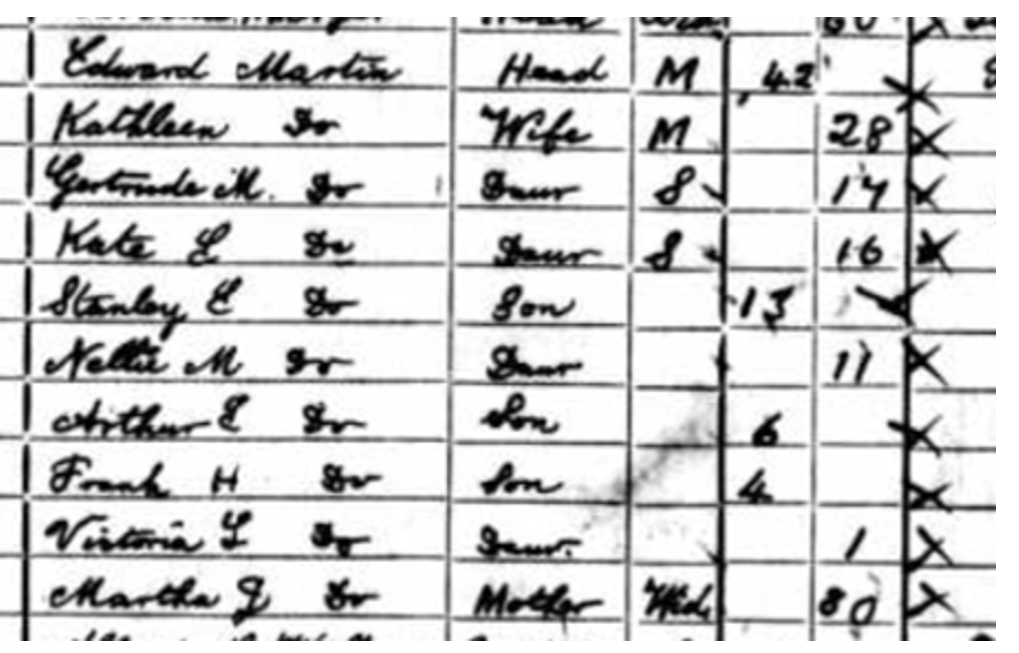 Edward Martin Head M 42
Kathleen Do Wife M 28
Gertrude M. Do Daur S 17
Kate E Do Daur S 16
Stanley E Do Son 13
Nellie M Do Daur 11
Arthur E Do Son 6
Frank H Do Son 4
Victoria L Do Daur. 1
Martha J Do Mother Wid. 80